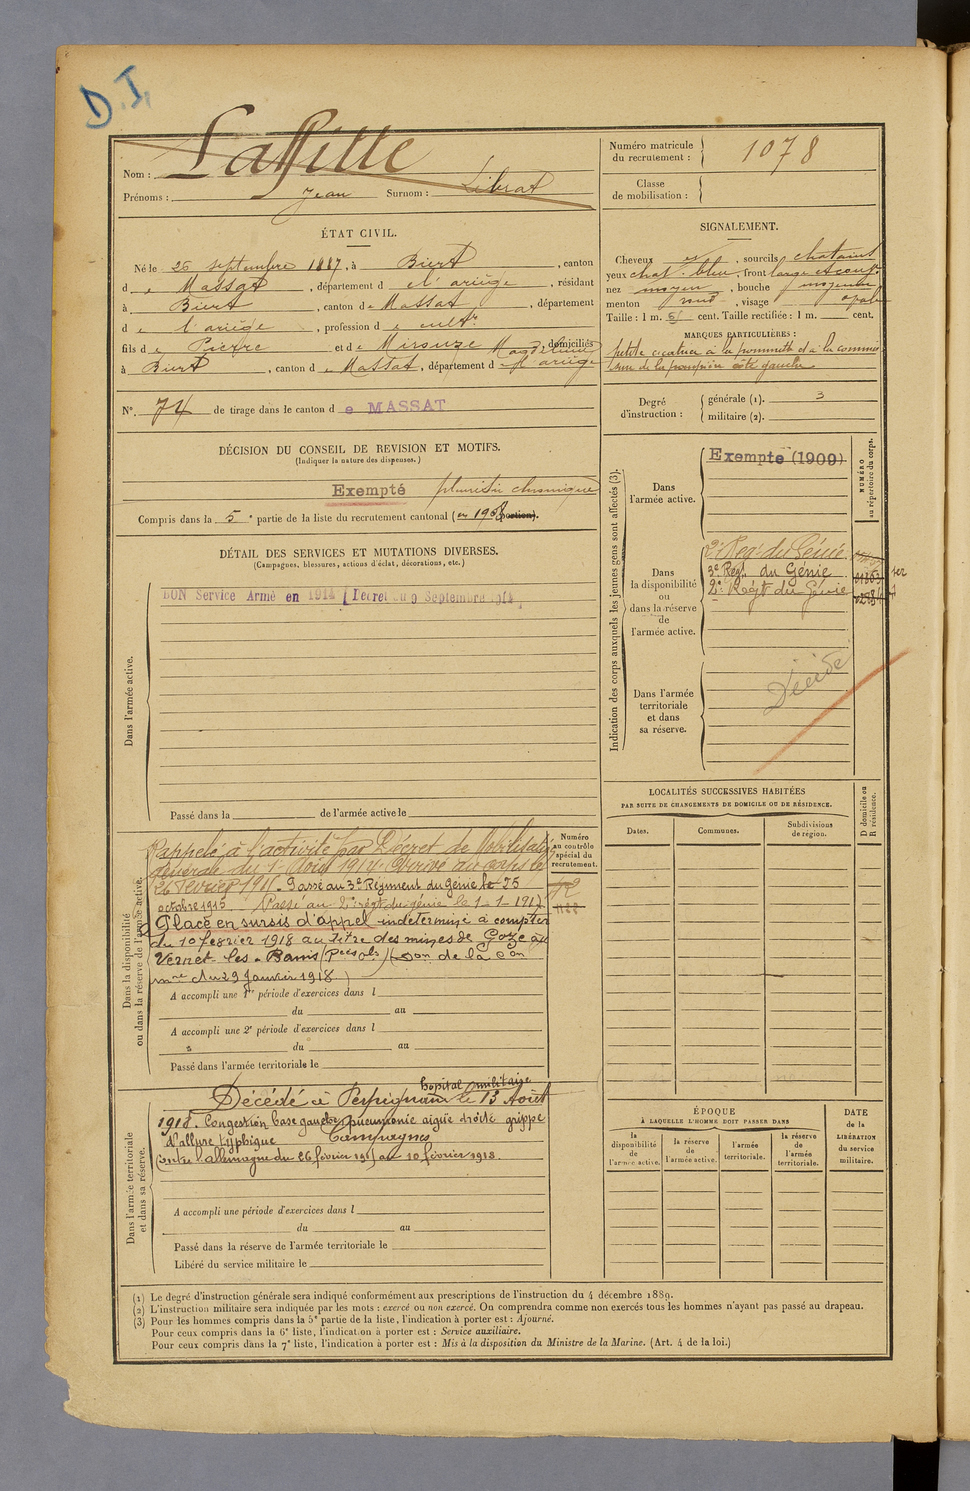 D. I.
Laffitte
Nom :
Prénoms : Jean Surnom : Librat
Numéro matricule
du recrutement :
1078
Classe
de mobilisation :
ÉTAT CIVIL.
Né le 26 septembre 1887, à Biert, canton
de Massat, département de l'ariège, résidant
à Biert, canton de Massat, département
de l'ariège, profession de cultr
fils de Pierre et de Mirouze Magdeleine domiciliés
à Biert, canton de Massat, département d ariège
N°. 74 de tirage dans le canton de MASSAT
SIGNALEMENT.
Cheveux et, sourcils chatains
yeux chat. bleu, front large
nez moyen, bouche moyenne
menton rond, visage opale
Taille : 1 m. cent. Taille rectifiée : 1 m. cent.
MARQUES PARTICULIÈRES :
petite cicatrice à la pommette et à la
de la paupière côté gauche
Degré
d'instruction :
générale (1). 3
militaire (2).
DÉCISION DU CONSEIL DE REVISION ET MOTIFS.
(Indiquer la nature des dispenses.)
Exempté pleurésie chronique
Compris dans la 5e partie de la liste du recrutement cantonal (en 1908 portion).
DÉTAIL DES SERVICES ET MUTATIONS DIVERSES.
(Campagnes, blessures, actions d'éclat, décorations, etc.)
BON Service Armé en 1914 [Décret du 9 Septembre 1914]
Dans l'armée active.
Passé dans la de l'armée active le
Indication des corps auxquels les jeunes gens sont affectés (3).
Dans
l'armée active.
Exempté (1909)
NUMÉRO
au répertoire du corps.
Dans
la disponibilité
ou
dans la réserve
de
l'armée active.
2e Regt du Génie
3e Regt du Génie
2e Regt du Génie
Dans l'armée
territoriale
et dans
sa réserve.
Décédé
LOCALITÉS SUCCESSIVES HABITÉES
PAR SUITE DE CHANGEMENTS DE DOMICILE OU DE RÉSIDENCE.
Dates.
Communes.
Subdivisions
de région.
D domicile ou
R résidence.
Dans la disponibilité
ou dans la réserve de l'armée active.
Numéro
au contrôle
spécial du
recrutement.
Rappelé à l'activité par Décret de Mobilisation
générale du 1er Août 1914. Arrivé au corps le
26 février 1915. Passé au 3e Régiment du Génie le 25
octobre 1915 Passé au 2e régt du génie le 1-1-1917
Placé en sursis d'appel indéterminé à compter
du 10 février 1918 au titre des mines de
Vernet-les-Bains
du 29 Janvier 1918
A accompli une 1re période d'exercices dans l
du au
A accompli une 2e période d'exercices dans l
du au
Passé dans l'armée territoriale le
Dans l'armée territoriale
et dans sa réserve.
hopital militaire
Décédé à Perpignan le 13 Août
1918. Congestion base gauche pneumonie aigüe droite grippe
d'allure typhique Campagnes
Contre l'allemagne du 26 février 1915 au 10 février 1918.
A accompli une période d'exercices dans l
du au
Passé dans la réserve de l'armée territoriale le
Libéré du service militaire le
ÉPOQUE
À LAQUELLE L'HOMME DOIT PASSER DANS
la
disponibilité
de
l'armée active.
la réserve
de
l'armée active.
l'armée
territoriale.
la réserve
de
l'armée
territoriale.
DATE
de la
LIBÉRATION
du service
militaire.
(1) Le degré d'instruction générale sera indiqué conformément aux prescriptions de l'instruction du 4 décembre 1889.
(2) L'instruction militaire sera indiquée par les mots : exercé ou non exercé. On comprendra comme non exercés tous les hommes n'ayant pas passé au drapeau.
(3) Pour les hommes compris dans la 5e partie de la liste, l'indication à porter est : Ajourné.
Pour ceux compris dans la 6e liste, l'indication à porter est : Service auxiliaire.
Pour ceux compris dans la 7e liste, l'indication à porter est : Mis à la disposition du Ministre de la Marine. (Art. 4 de la loi.)